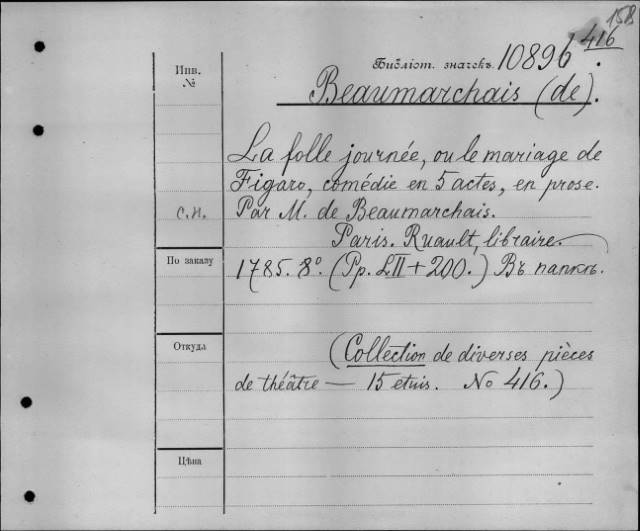 158
416
Инв.
№
Библіот. значекъ 10896
Beaumarchais (de).
La folle journée, ou le mariage de
Figaro, comédie en 5 actes, en prose.
С.Н. Par M. de Beaumarchais.
Paris. Ruault, libraire.
По заказу
1785. 8°. (Pp. LII + 200.) Въ папкѣ.
Откуда
(Collection de diverses pièces
de théâtre — 15 etuis. No 416.)
Цѣна